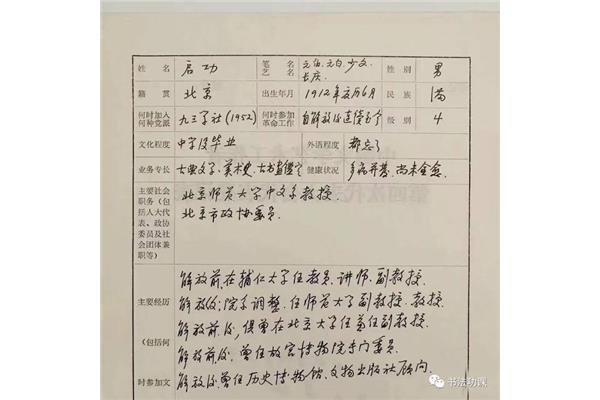 姓名 启功 笔名艺名 元伯、元白、少文、长庆 性别 男
籍贯 北京 出生年月 1912年夏历6月 民族 满
何时加入何种党派 九三学社(1952) 何时参加革命工作 自解放后连续至今 级别 4
文化程度 中学没毕业 外语程度 都忘了
业务专长 古典文学、美术史、古书画鉴定 健康状况 多病并甚,尚未全愈
主要社会职务(包括人大代表、政协委员及社会团体兼职等) 北京师范大学中文系教授.
北京市政协委员.
主要经历
(包括何
时参加文
解放前在辅仁大学任教员、讲师、副教授.
解放后:院系调整.任师范大学副教授、教授.
解放前后,俱曾在北京大学任兼任副教授.
解放前后:曾任故宫博物院专门委员.
解放后曾任历史博物馆、文物出版社顾问.
书法功课